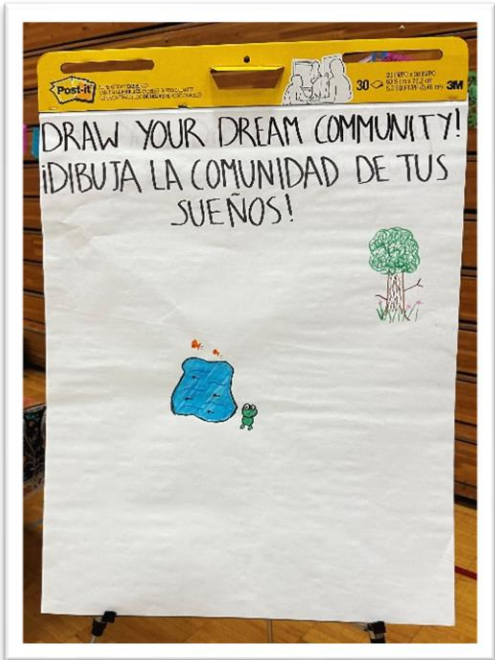 Post-it
30
3M
DRAW YOUR DREAM COMMUNITY!
¡DIBUJA LA COMUNIDAD DE TUS
SUEÑOS!